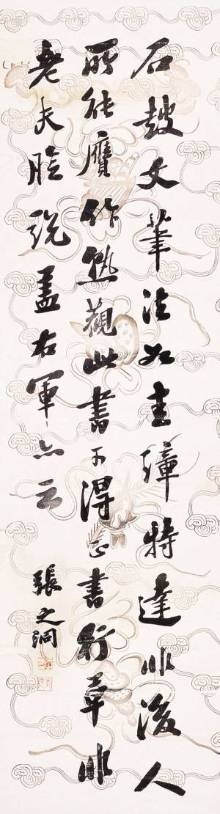 石鼓文筆法如圭璋特達非後人
所能贋作熟觀此書可得正書行草非
老夫臆説蓋右軍亦云
張之洞